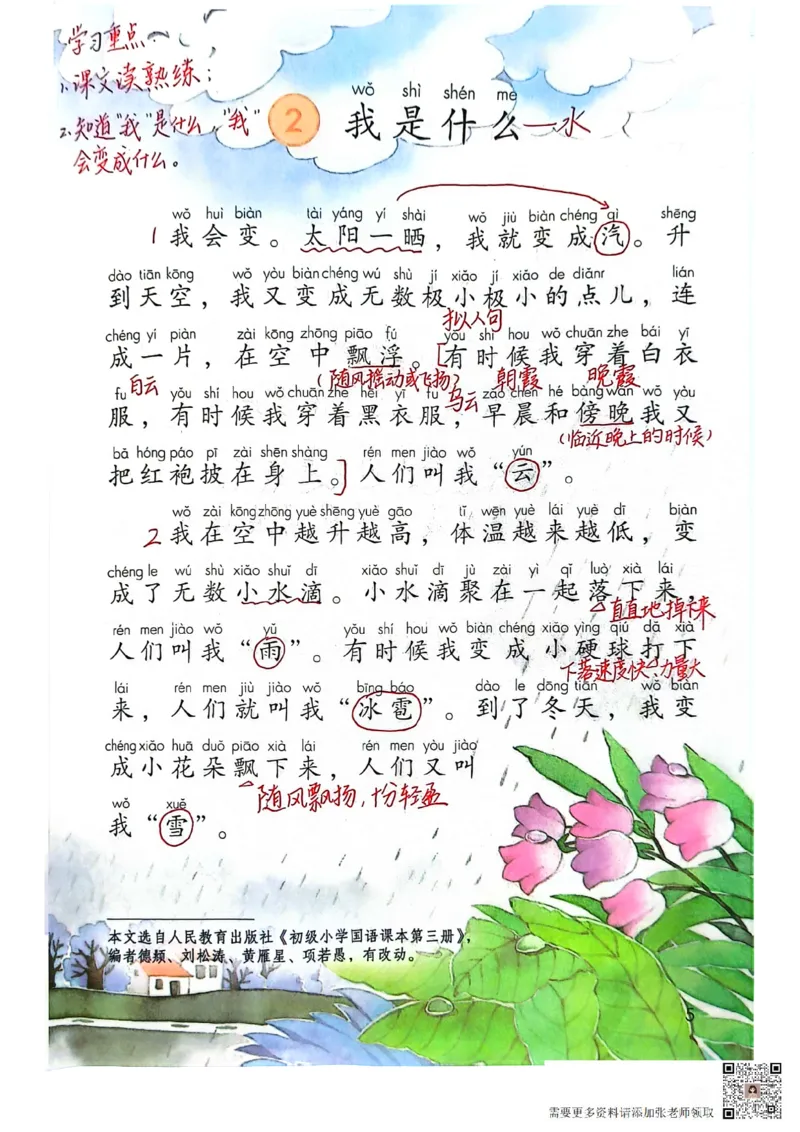 学习重点:
1.课文读熟练；
2.知道“我”是什么，“我”
会变成什么。
wǒ shì shén me
2 我是什么—水
wǒ huì biàn tài yáng yí shài wǒ jiù biàn chéng qì shēng
1 我会变。太阳一晒，我就变成汽。升
dào tiān kōng wǒ yòu biàn chéng wú shù jí xiǎo jí xiǎo de diǎnr lián
到天空，我又变成无数极小极小的点儿，连
拟人句
chéng yí piàn zài kōng zhōng piāo fú yǒu shí hou wǒ chuān zhe bái yī
成一片，在空中飘浮。[有时候我穿着白衣
白云 （随风摇动或飞扬） 乌云 朝霞 晚霞
fu yǒu shí hou wǒ chuān zhe hēi yī fu zǎo chen hé bàng wǎn wǒ yòu
服，有时候我穿着黑衣服，早晨和傍晚我又
（临近晚上的时候）
bǎ hóng páo pī zài shēn shàng rén men jiào wǒ yún
把红袍披在身上。]人们叫我“云”。
wǒ zài kōng zhōng yuè shēng yuè gāo tǐ wēn yuè lái yuè dī biàn
2 我在空中越升越高，体温越来越低，变
chéng le wú shù xiǎo shuǐ dī xiǎo shuǐ dī jù zài yì qǐ luò xià lái
成了无数小水滴。小水滴聚在一起落下来，
直直地掉下来
rén men jiào wǒ yǔ yǒu shí hou wǒ biàn chéng xiǎo yìng qiú dǎ xià
人们叫我“雨”。有时候我变成小硬球打下
下落速度快、力量大
lái rén men jiù jiào wǒ bīng báo dào le dōng tiān wǒ biàn
来，人们就叫我“冰雹”。到了冬天，我变
chéng xiǎo huā duǒ piāo xià lái rén men yòu jiào
成小花朵飘下来，人们又叫
随风飘扬，十分轻盈
wǒ xuě
我“雪”。
本文选自人民教育出版社《初级小学国语课本第三册》，
编者德颊、刘松涛、黄雁星、项若愚，有改动。
5
需要更多资料请添加张老师领取